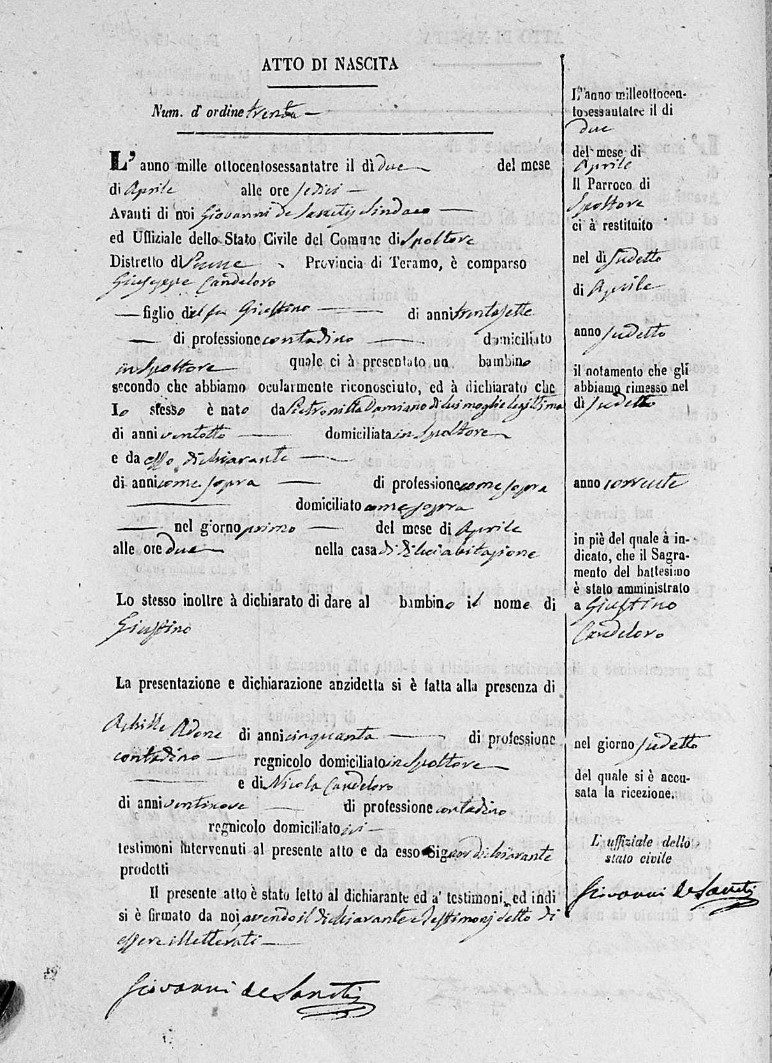 ATTO DI NASCITA
Num. d' ordine trenta
L' anno mille ottocentosessantatre il dì due del mese
di Aprile alle ore sedici
Avanti di noi Giovanni de Sanctis Sindaco
ed Uffiziale dello Stato Civile del Comune di Spoltore
Distretto di Penne Provincia di Teramo, è comparso
Giuseppe Candeloro
figlio del fu Giustino di anni trentasette
di professione contadino domiciliato
in Spoltore quale ci à presentato un bambino
secondo che abbiamo ocularmente riconosciuto, ed à dichiarato che
lo stesso è nato da Pietronilla Damiano di lui moglie legittima
di anni ventotto domiciliata in Spoltore
e da esso dichiarante
di anni come sopra di professione come sopra
domiciliato come sopra
nel giorno primo del mese di Aprile
alle ore due nella casa di di lui abitazione
Lo stesso inoltre à dichiarato di dare al bambino il nome di
Giustino
La presentazione e dichiarazione anzidetta si è fatta alla presenza di
Achille di anni cinquanta di professione
contadino regnicolo domiciliato in Spoltore
e di Nicola Candeloro
di anni ventinove di professione contadino
regnicolo domiciliato ivi
testimoni intervenuti al presente atto e da esso Signor dichiarante
prodotti
Il presente atto è stato letto al dichiarante ed a' testimoni, ed indi
si è firmato da noi avendo il dichiarante e testimonj detto di
essere illetterati
Giovanni de Sanctis
L'anno milleottocen-
tosessantatre il dì
due
del mese di
Aprile
Il Parroco di
Spoltore
ci à restituito
nel dì sudetto
di Aprile
anno sudetto
il notamento che gli
abbiamo rimesso nel
dì sudetto
anno corrente
in piè del quale à in-
dicato, che il Sagra-
mento del battesimo
è stato amministrato
a Giustino
Candeloro
nel giorno sudetto
del quale si è accu-
sata la ricezione.
L'uffiziale dello
stato civile
Giovanni de Sanctis